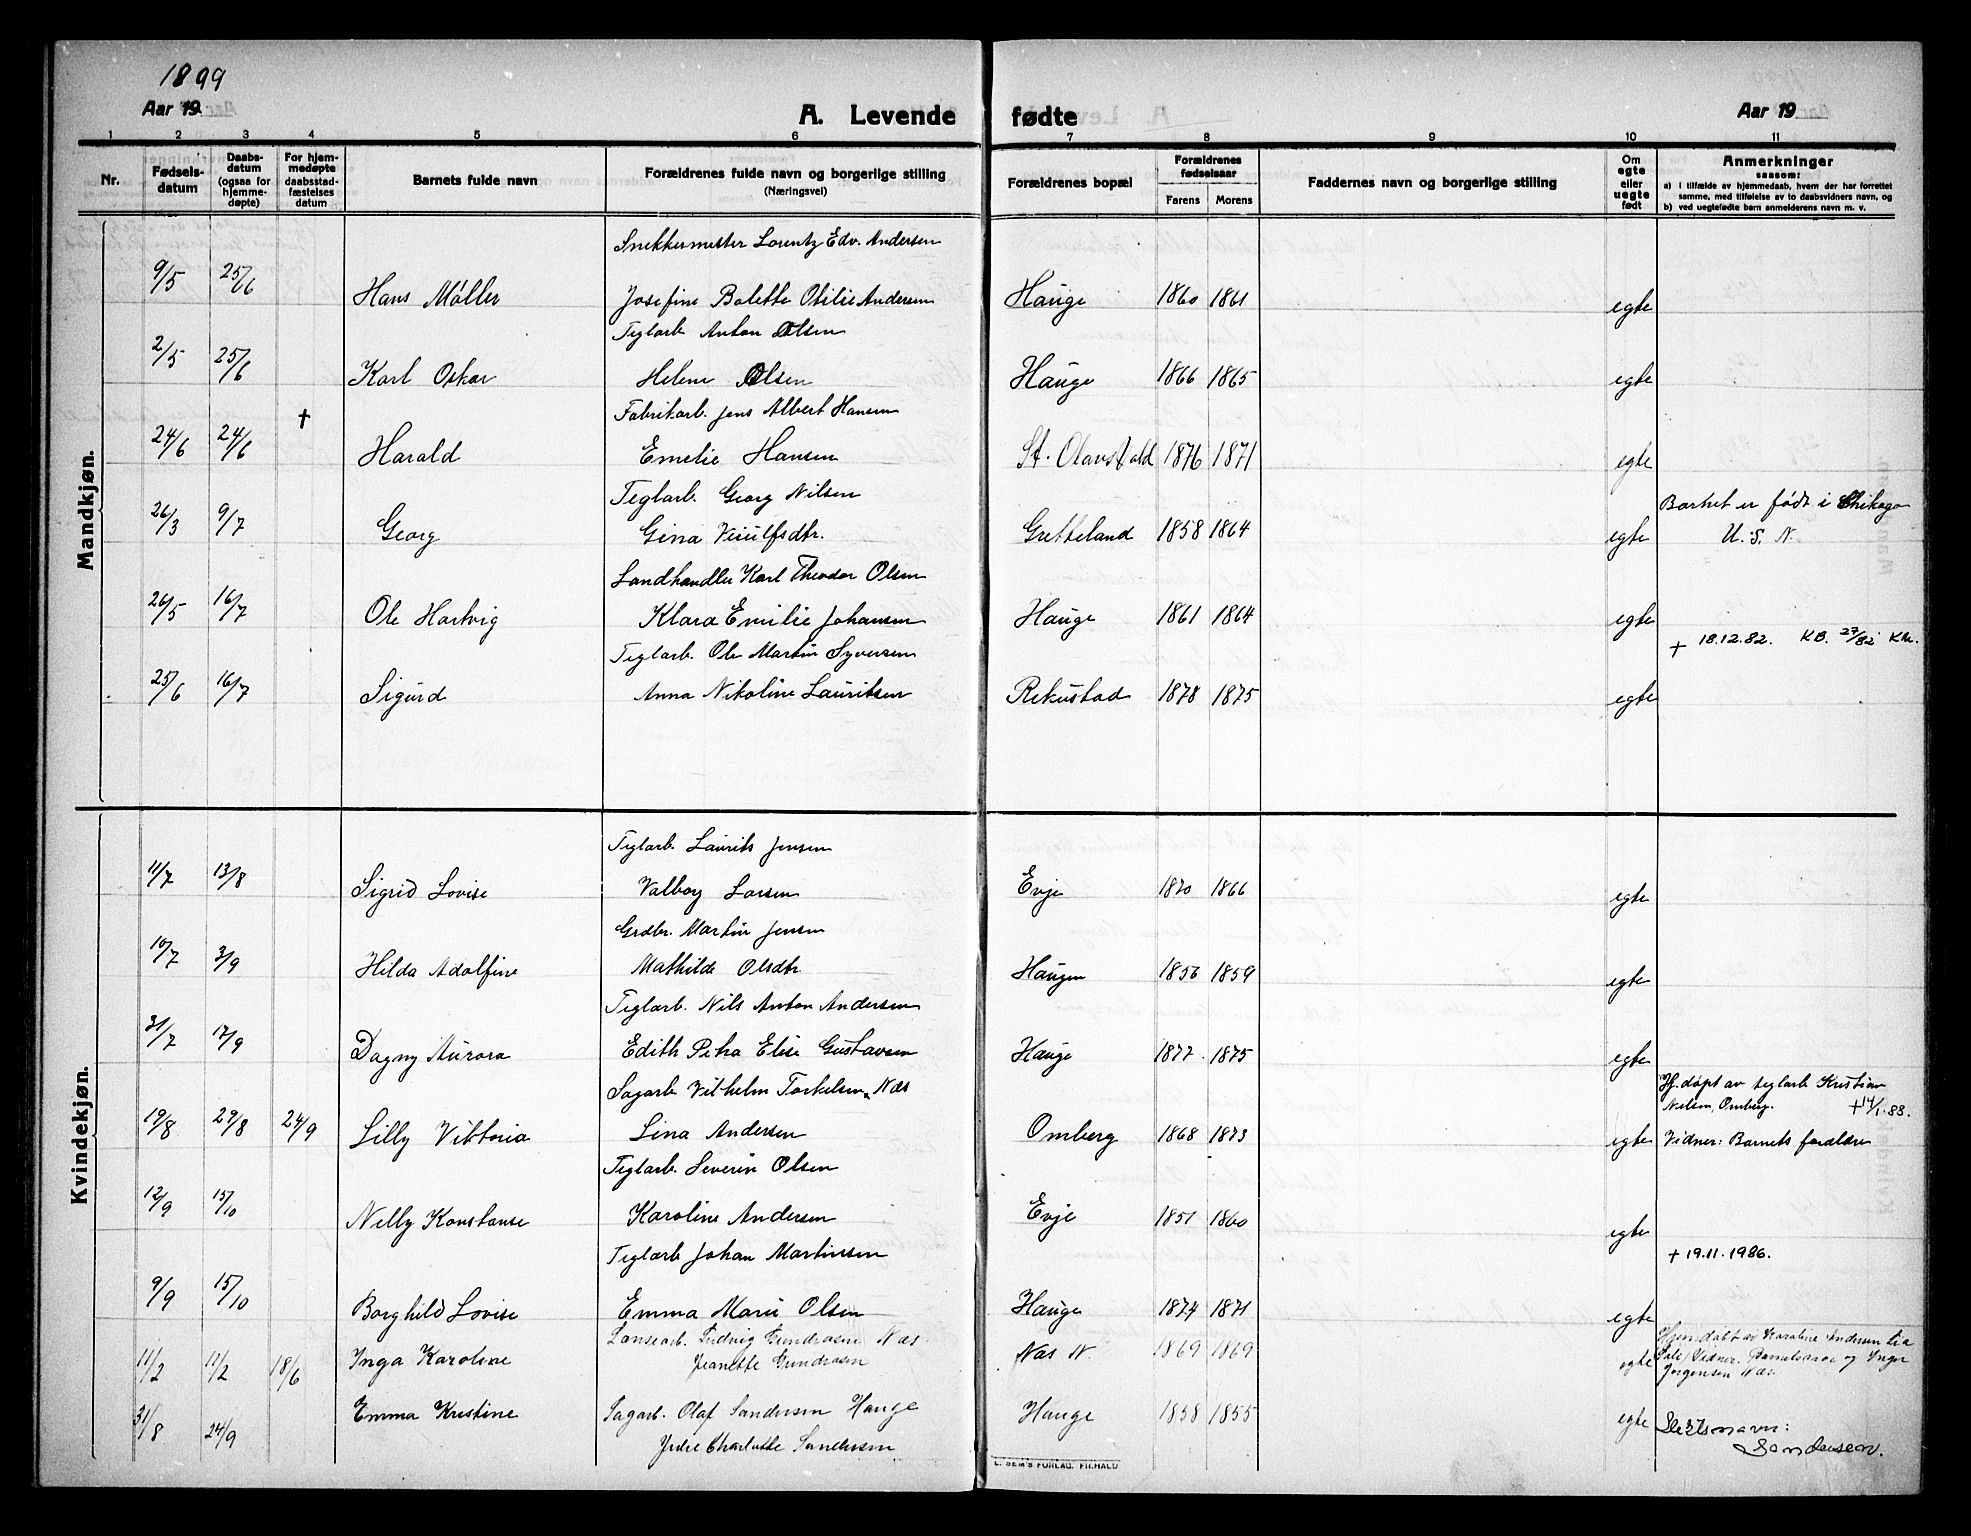 1899
Aar 19
A. Levende fødte
Aar 19
1 2 3 4 5 6 7 8 9 10 11
Nr.
Fødselsdatum
Daabsdatum (ogsaa for hjemmedøpte)
For hjemmedøpte daabsstadfæstelses datum
Barnets fulde navn
Forældrenes fulde navn og borgerlige stilling (Næringsvei)
Forældrenes bopæl
Forældrenes fødselsaar
Farens Morens
Faddernes navn og borgerlige stilling
Om egte eller uegte født
Anmerkninger
saasom:
a) i tilfælde av hjemmedaab, hvem der har forrettet
samme, med tilføielse av to daabsvidners navn, og
b) ved uegtefødte børn anmelderens navn m. v.
Mandkjøn.
Snekkermester Lorentz Edv. Andersen
9/5 25/6 Hans Møller Josefine Bolette Otilie Andersen Hauge 1860 1861 egte
Teglarb Anton Olsen
2/5 25/6 Karl Oskar Helene Olsen Hauge 1866 1865 egte
Fabrikarb. Jens Albert Hansen
24/6 24/6 † Harald Emelie Hansen St. Olavs Vold 1876 1871 egte
Teglarb. Georg Nilsen
26/3 9/7 Georg Gina Viulfsdtr. Gretteland 1858 1864 egte Barnet er født i Chikago
U. S. N.
Landhandler Karl Theodor Olsen
26/5 16/7 Ole Hartvig Klara Emilie Johansen Hauge 1861 1864 egte
+ 18.12.82. KB. 27/82 KM.
Teglarb. Ole Martin Syversen
25/6 16/7 Sigurd Anna Nikoline Lauritsen Rekustad 1878 1875 egte
Kvindekjøn.
Teglarb. Laurits Jensen
11/7 13/8 Sigrid Lovise Valborg Larsen Evje 1870 1866 egte
Grdbr. Martin Jensen
10/7 3/9 Hilda Adolfine Mathilde Olsdtr. Haugen 1856 1859 egte
Teglarb. Nils Anton Andersen
31/7 17/9 Dagny Aurora Edith Petra Elise Gustavsen Hauge 1877 1875 egte
Sagarb Vilhelm Torkelsen Næs
Hj. døpt av teglarb Kristian
Nilsen, Omberg. + 14/1.83.
19/8 29/8 24/9 Lilly Viktoria Lina Andersen Omberg 1868 1873 egte Vidner: Barnets forældre
Teglarb. Severin Olsen
12/9 15/10 Nelly Konstanse Karoline Andersen Evje 1851 1860 egte
+ 19.11.1986.
Teglarb Johan Martinsen
9/9 15/10 Borghild Lovise Emma Marie Olsen Hauge 1874 1871 egte
Ludvig Gundersen Næs
11/2 11/2 18/6 Inga Karoline Jeanette Gundersen Næs N. 1869 1869 egte
Hjemdøbt av Karoline Andersen
Vidner: og Inger
Jørgensen Næs.
31/8 24/9 Emma Kristine Sagarb. Olaf Sandersen Hauge Hauge 1858 1855 egte
Charlotte Sandersen
Slektsnavn:
Sandersen.
E. SEM'S FORLAG. FR.HALD